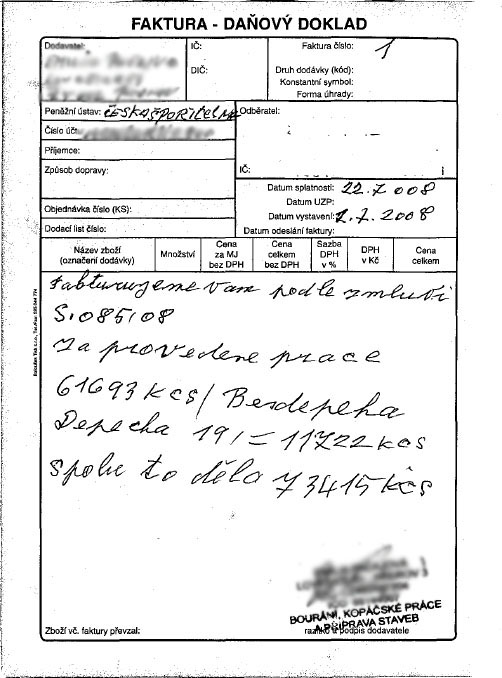 FAKTURA - DAŇOVÝ DOKLAD
Dodavatel:
IČ:
DIČ:
Faktura číslo: 1
Druh dodávky (kód):
Konstantní symbol:
Forma úhrady:
Peněžní ústav: ČESKASPOŘITELNA
Číslo účt
Příjemce:
Způsob dopravy:
Objednávka číslo (KS):
Dodací list číslo:
Odběratel:
IČ:
Datum splatnosti: 22.7 008
Datum UZP:
Datum vystavení: 2.7.2008
Datum odeslání faktury:
Název zboží (označení dodávky)
Množství
Cena za MJ bez DPH
Cena celkem bez DPH
Sazba DPH v %
DPH v Kč
Cena celkem
Fakturujeme Vam podle zmluvi
S.085/08
Za provedene prace
61693 kcs/ Bezdepeha
Depecha 19/= 11722 kcs
Spolu to děla 73415 kčs
BOURÁNÍ, KOPÁČSKÉ PRÁCE
A PŘÍPRAVA STAVEB
Zboží vč. faktury převzal:
razítko a podpis dodavatele